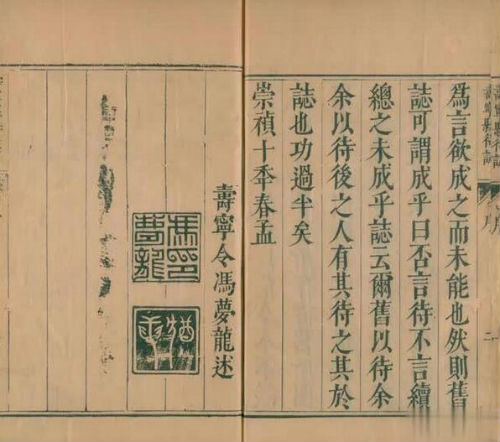 為言欲成之而未能也然則舊
誌可謂成乎曰否言待不言續
總之未成乎誌云爾舊以待余
余以待後之人有其待之其於
誌也功過半矣
崇禎十年春孟
壽寧令馮夢龍述
馮夢龍印
猶龍